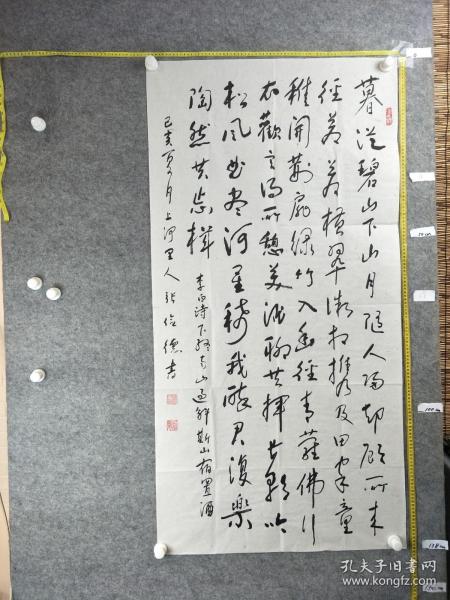 暮從碧山下山月随人歸却顧所来
徑蒼蒼橫翠微相携及田家童
稚開荊扉绿竹入幽徑青蘿拂行
衣歡言得所憩美酒聊共揮長歌吟
松風曲盡河星稀我醉君復樂
陶然共忘機
李白诗下終南山過斛斯山宿置酒
己亥月上河里人张德書
100cm
孔夫子旧书网
www.kongfz.com